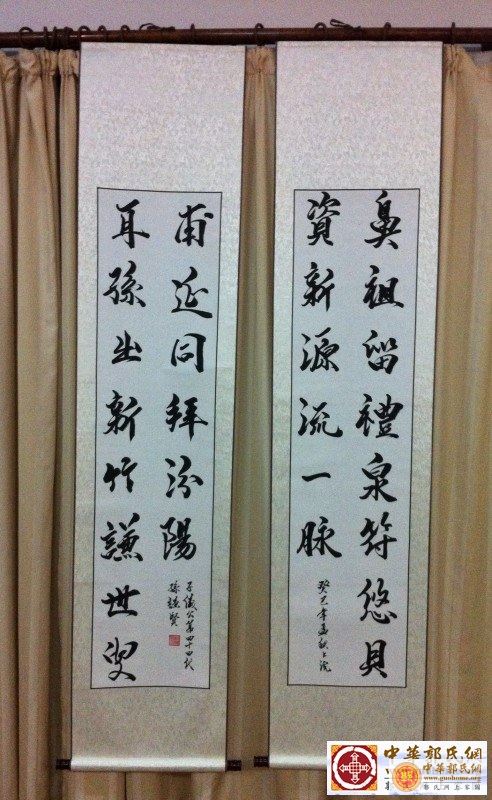 鼻祖留禮泉符悠貝
資新源流一脈
癸巳年孟秋上浣
耳孫出新竹謙世叟
甫延同拜汾陽
子儀公第四十四代
孫 賢
中華郭氏網
中華郭氏網
www.guohome.org
郭氏網上家園